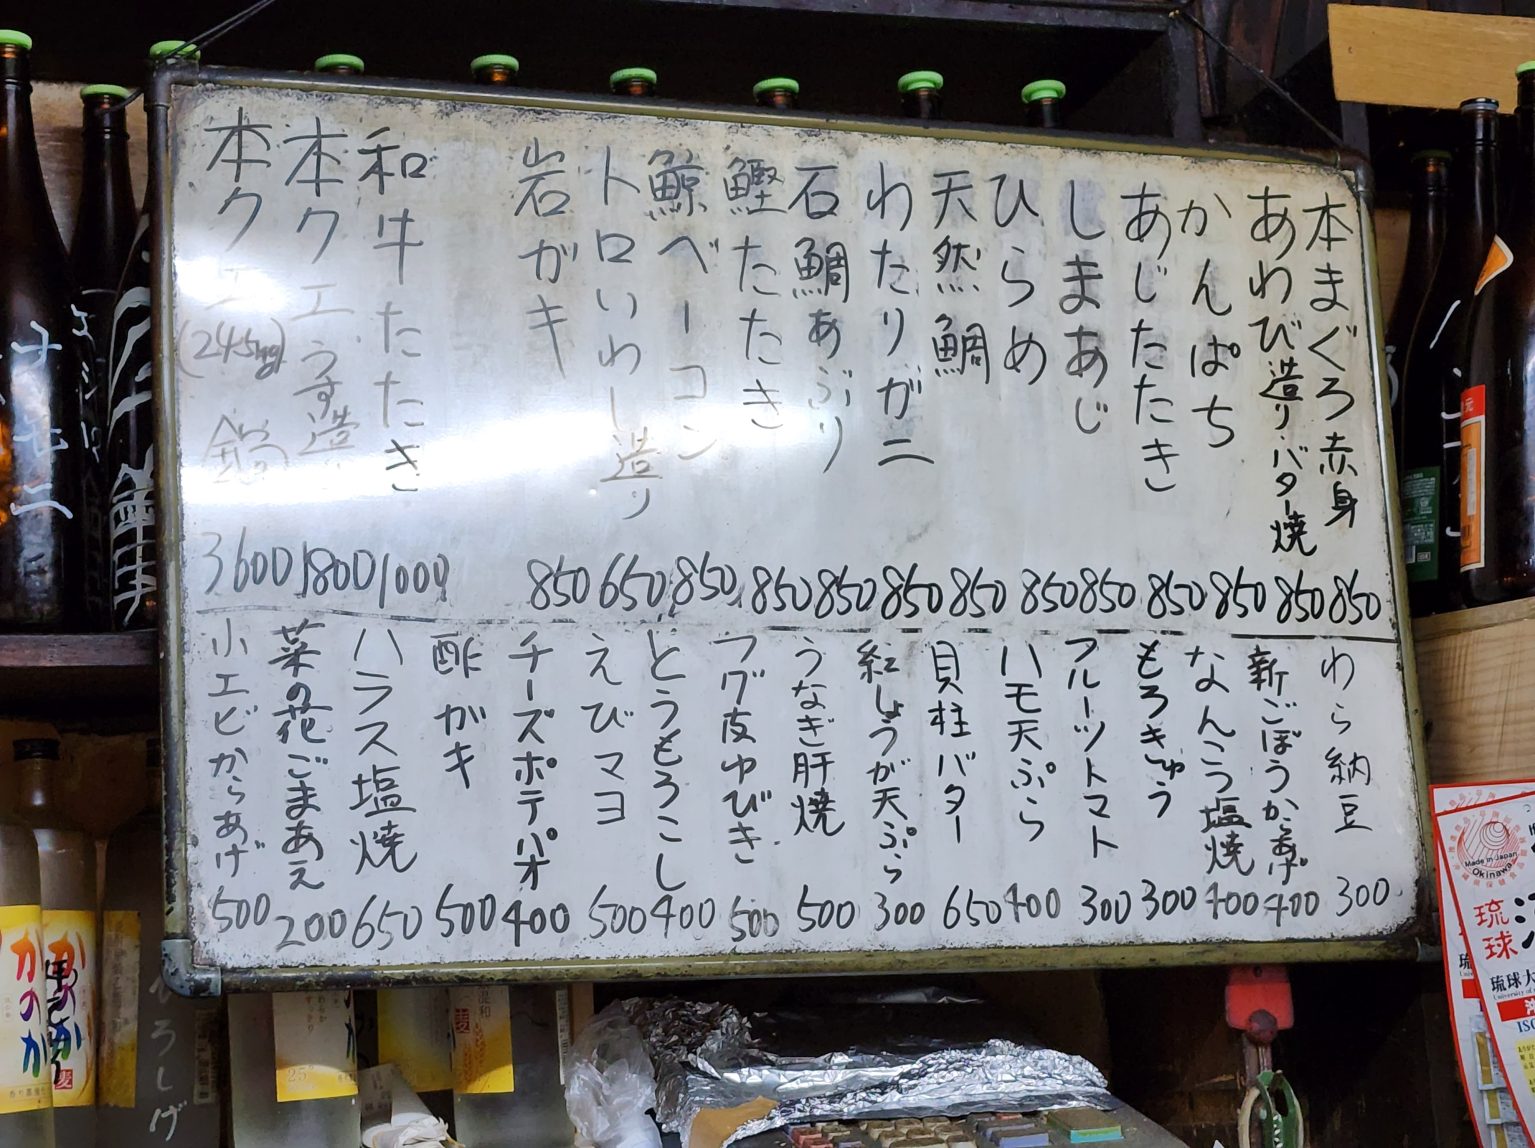 本まぐろ赤身 850
あわび造り・バター焼 850
かんぱち 850
あじたたき 850
しまあじ 850
ひらめ 850
天然鯛 850
わたりガニ 850
石鯛あぶり 850
鰹たたき 850
鯨ベーコン 850
トロいわし造り 650
岩がキ 850
和牛たたき 1000
本クエうす造り 1800
本クエ(24.5kg)鍋 3600
わら納豆 300
新ごぼうからあげ 400
なんこう塩焼 400
もろきゅう 300
フルーツトマト 300
ハモ天ぷら 400
貝柱バター 650
紅しょうが天ぷら 300
うなぎ肝焼 500
フグ皮ゆびき 500
とうもろこし 400
えびマヨ 500
チーズポテパオ 400
酢がキ 500
ハラス塩焼 650
菜の花ごまあえ 200
小エビからあげ 500
かのか
かのか
麦
25°
Made in Japan
Okinawa
琉球
琉球大